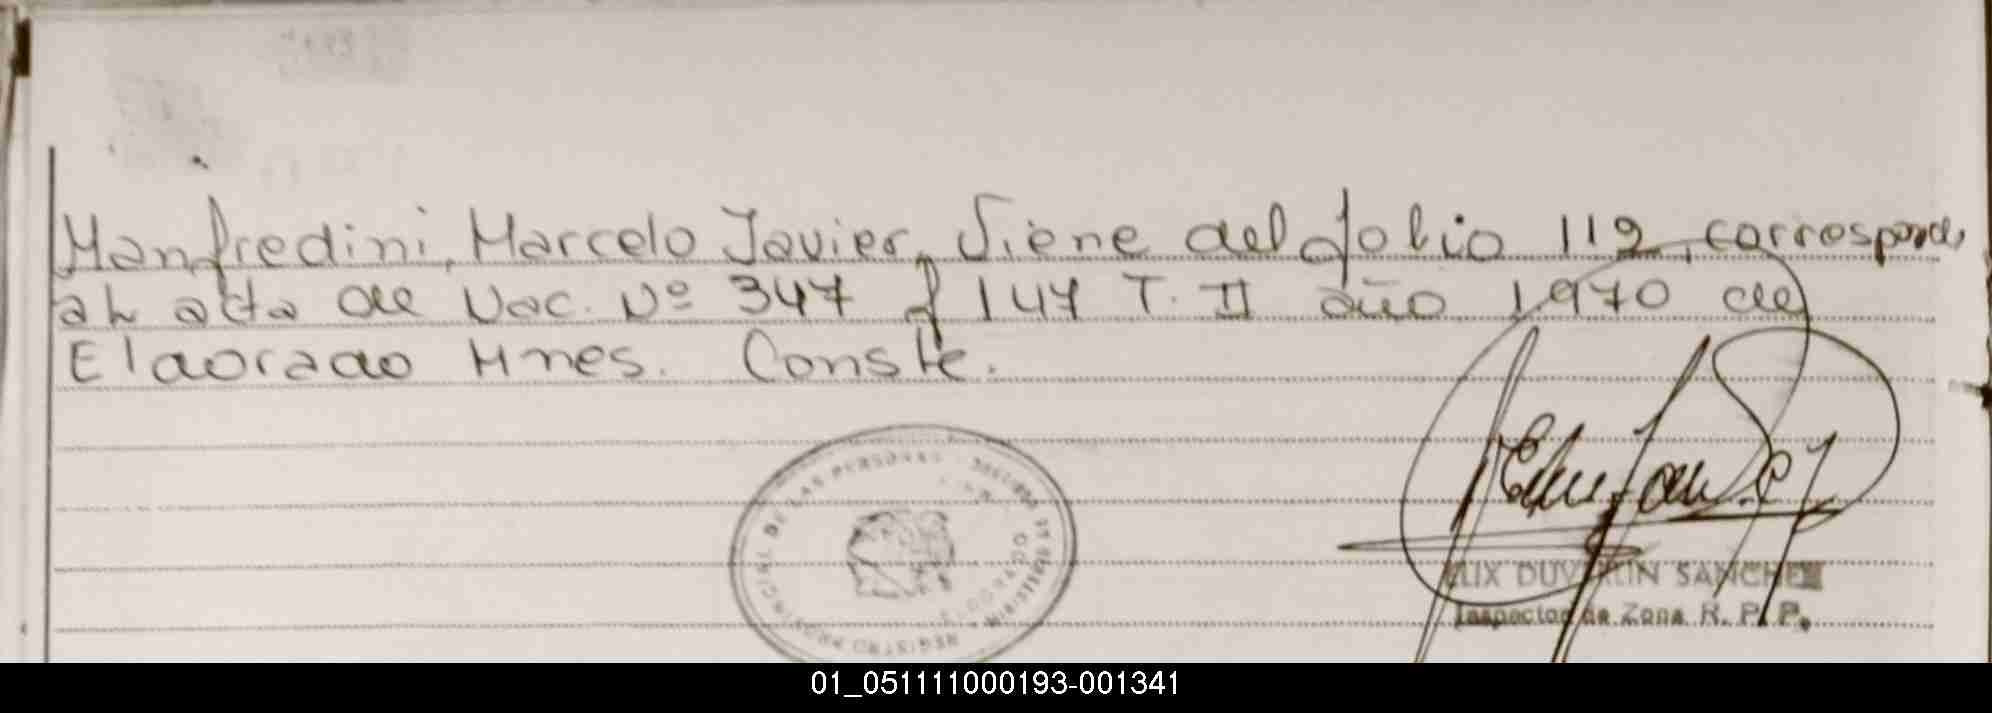 Manfredini, Marcelo Javier, Viene del folio 112, corresponde
al acta de Nac. Nº 347 f 147 T. II año 1970 de
Eldorado Mnes. Conste.
REGISTRO PROVINCIAL DE LAS PERSONAS
ELDORADO
FELIX DUVERLIN SANCHEZ
Inspector de Zona R. P. P.
01_051111000193-001341